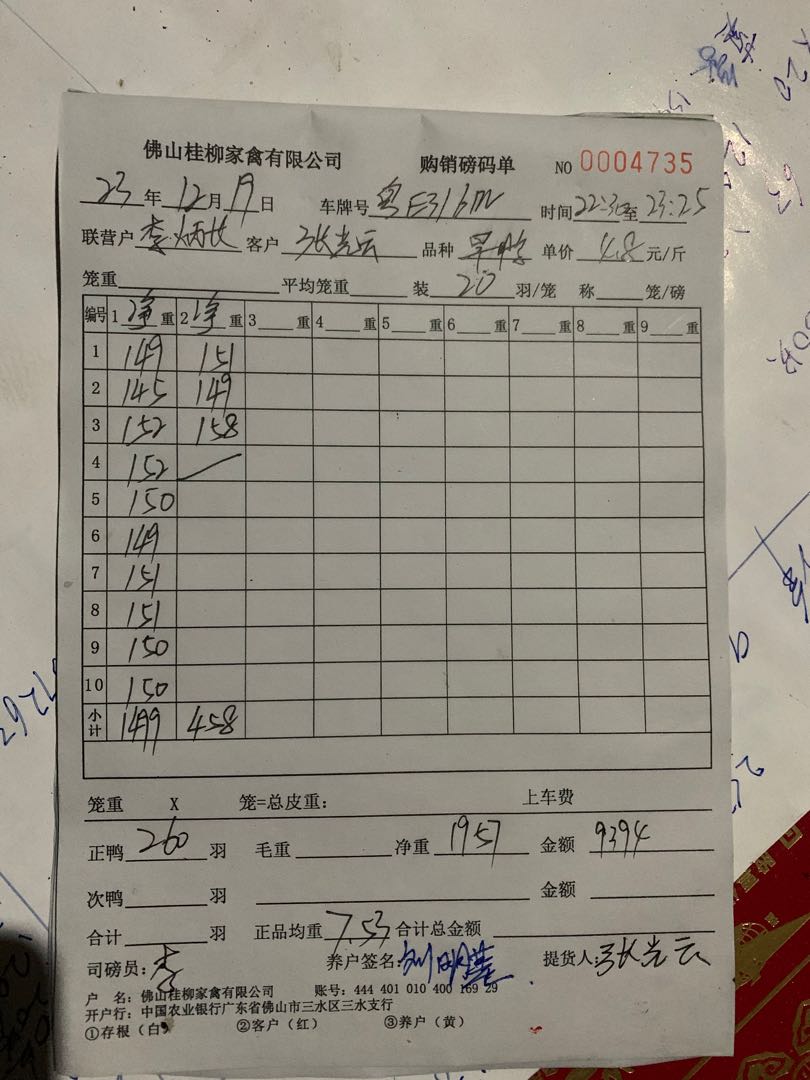 佛山桂柳家禽有限公司 购销磅码单 NO 0004735
23 年 12 月 19 日 车牌号 粤E316m 时间 22:30 至 23:25
联营户 李炳长 客户 张光云 品种 单价 4.8 元/斤
笼重 平均笼重 装 20 羽/笼 称 笼/磅
编号 1 净 重 2 净 重 3 重 4 重 5 重 6 重 7 重 8 重 9 重
1 149 151
2 145 149
3 152 158
4 152
5 150
6 149
7 151
8 151
9 150
10 150
小计 1499 458
笼重 X 笼=总皮重: 上车费
正鸭 260 羽 毛重 净重 1957 金额 9394
次鸭 羽 金额
合计 羽 正品均重 7.53 合计总金额
司磅员: 李 养户签名: 提货人: 张光云
户 名: 佛山桂柳家禽有限公司 账号: 444 401 010 400 169 29
开户行: 中国农业银行广东省佛山市三水区三水支行
①存根（白） ②客户（红） ③养户（黄）